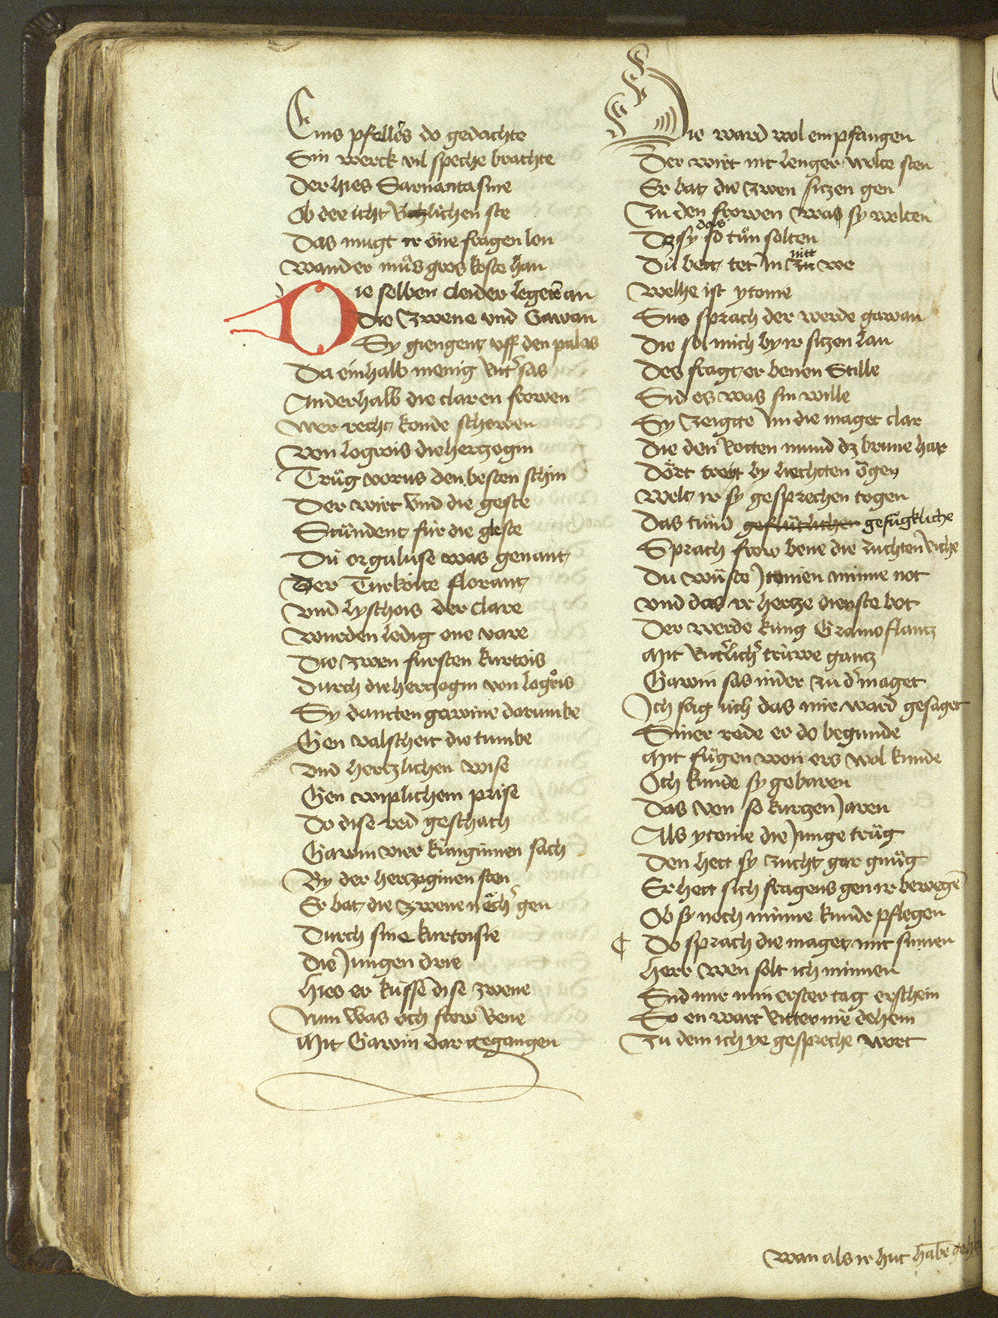 Eins pfellers do gedachte
Sin werck vil speche brachte
Der hies Sarnantasine
Ob der icht richlichen ste
Das mugt ir öne fragen lon
wander můs gros koste han
Die selben cleider legetē an
Die Zwene vnd Gawan
Sy giengent vff den palas
Da einhalb menig Ritter sas
Anderhalb die claren frowen
wer recht konde schowen
von logrois die hertzogin
Trůg vorus den besten schin
Der wirt vnd die geste
Stůndent für die gleste
Dü orguluse was genant
Der Turkoite florant
vnd lyschois der clare
wurden ledig one vare
Die zwen fürsten kurtois
Durch die hertzogin von logrois
Sy dancten gawine darumbe
Gen valscheit die tumbe
vnd hertzlichen wise
Gen wiplichem prise
Do dise red geschach
Gawin vier künginnen sach
By der herzoginen sten
Er bat die zwene näch gen
Durch sine kurtoisie
Die Jungen drie
Hies er küssē dise zwene
Nun was öch frow Bene
Mit Gawin dar gegangen
Die ward wol empfangen
Der wirt nit lenger wolte sten
Er bat die zwen sitzen gen
Zu den frowen was sy wolten
Do sy das so tůn solten
Dü bett tet in nitt zü we
welhe ist ytonie
Sus sprach der werde gawan
Die sol mich by ir sitzen lan
Des fragt er benen Stille
Sid es was sin wille
Sy zeigte im die maget clar
Die den Rotten mund dz brune har
Dört treit by liechten ögen
welt ir sy gesprechen togen
Das tůnd gefůgkliche
Sprach frow bene die zuchten riche
Dü wüste Jtonien minne not
vnd das ir hertze dienste bot
Der werde küng Gramoflantz
Mit Ritterlicher trüwe gantz
Gawin sas nider zů der maget
Ich sag üch das mir ward gesaget
Siner rede er do begunde
Mit fůgen won ers wol kunde
Och kunde sy gebaren
Das von so kurtzen Jaren
Als ytonie die Junge trůg
Den hett sy zucht gar gnůg
Er hett sich fragens gen ir bewegē
Ob sy noch minne kunde pflegen
Do sprach die maget mit sinnen
Herr wen solt ich minnen
Sid mir min erster tag erschein
So en wart Ritter nie dehein
Zu dem ich ye gespreche wort
wan als ir hut habē